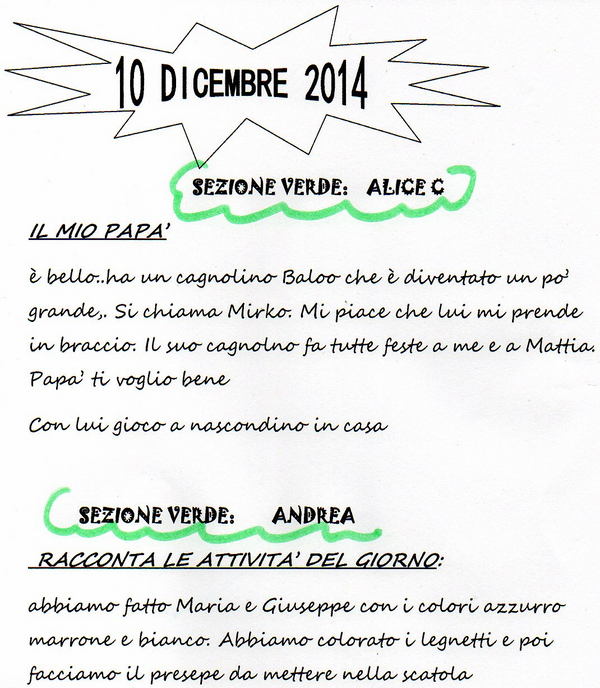 10 DICEMBRE 2014
SEZIONE VERDE: ALICE C
IL MIO PAPA'
è bello..ha un cagnolino Baloo che è diventato un po'
grande,. Si chiama Mirko. Mi piace che lui mi prende
in braccio. Il suo cagnolno fa tutte feste a me e a Mattia.
Papa' ti voglio bene
Con lui gioco a nascondino in casa
SEZIONE VERDE: ANDREA
RACCONTA LE ATTIVITA' DEL GIORNO:
abbiamo fatto Maria e Giuseppe con i colori azzurro
marrone e bianco. Abbiamo colorato i legnetti e poi
facciamo il presepe da mettere nella scatola